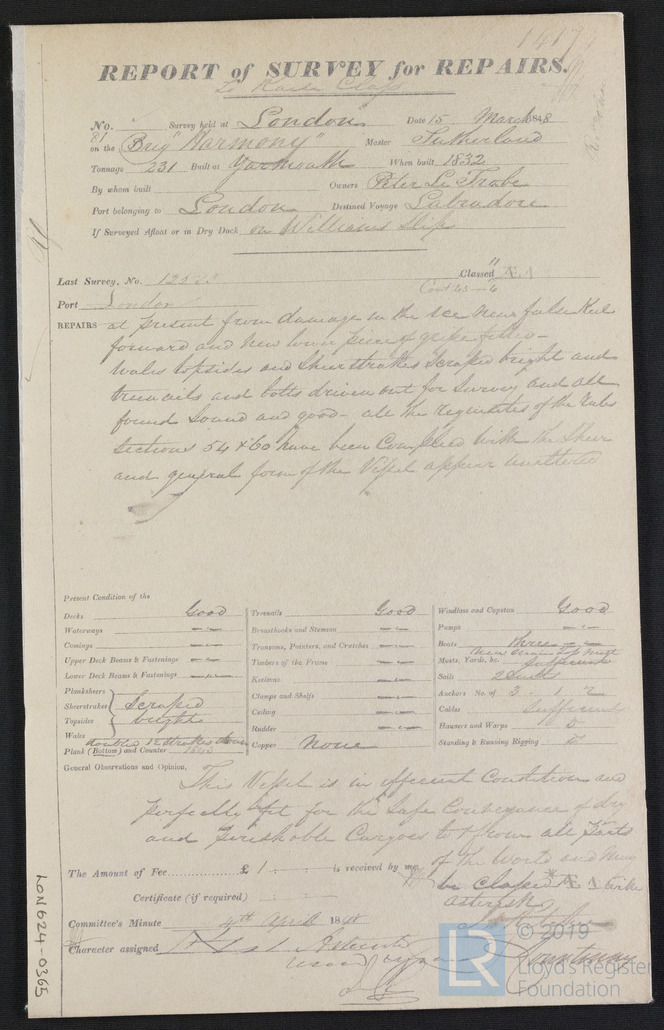 REPORT of SURVEY for REPAIRS.
No. 81 Survey held at London Date 15 March 1848
on the Brig "Harmony" Master Sutherland
Tonnage 231 Built at Yarmouth When built 1832
By whom built Owners Peter La Trobe
Port belonging to London Destined Voyage Labrador
If Surveyed Afloat or in Dry Dock on Williams Slip
Last Survey, No. Classed Æ 1
Port London
REPAIRS at present from damage in the ice new false Keel
forward and new lower piece of gripe fitted
Wales topsides and Sheerstrakes Scraped bright and
treenails and bolts driven out for Survey and all
found Sound and good - all the requisites of the Rules
Sections 54 & 60 have been Complied with the Sheer
and general form of the Vessel appear unaltered
Present Condition of the
Decks Good
Waterways
Comings
Upper Deck Beams & Fastenings
Lower Deck Beams & Fastenings
Planksheers
Sheerstrakes Scraped
Topsides bright
Wales doubled 12 strakes down
Plank (Bottom) and Counter
Treenails Good
Breasthooks and Stemson
Transoms, Pointers, and Crutches
Timbers of the Frame
Keelsons
Clamps and Shelfs
Ceiling
Rudder
Copper None
Windlass and Capstan Good
Pumps
Boats three
Masts, Yards, &c. Sufficient
Sails 2 Suits
Anchors No. of 3 . 1 . 2
Cables Sufficient
Hawsers and Warps Do
Standing & Running Rigging Do
General Observations and Opinion,
This Vessel is in efficient Condition and
perfectly fit for the Safe Conveyance of dry
and perishable Cargoes to & from all Parts
of the World and may
be Classed * Æ 1
asterisk
The Amount of Fee £ 1 is received by me,
Certificate (if required)
Committee's Minute 4th April 1848
Character assigned
LON624-0365
LR
© 2019
Lloyd's Register
Foundation